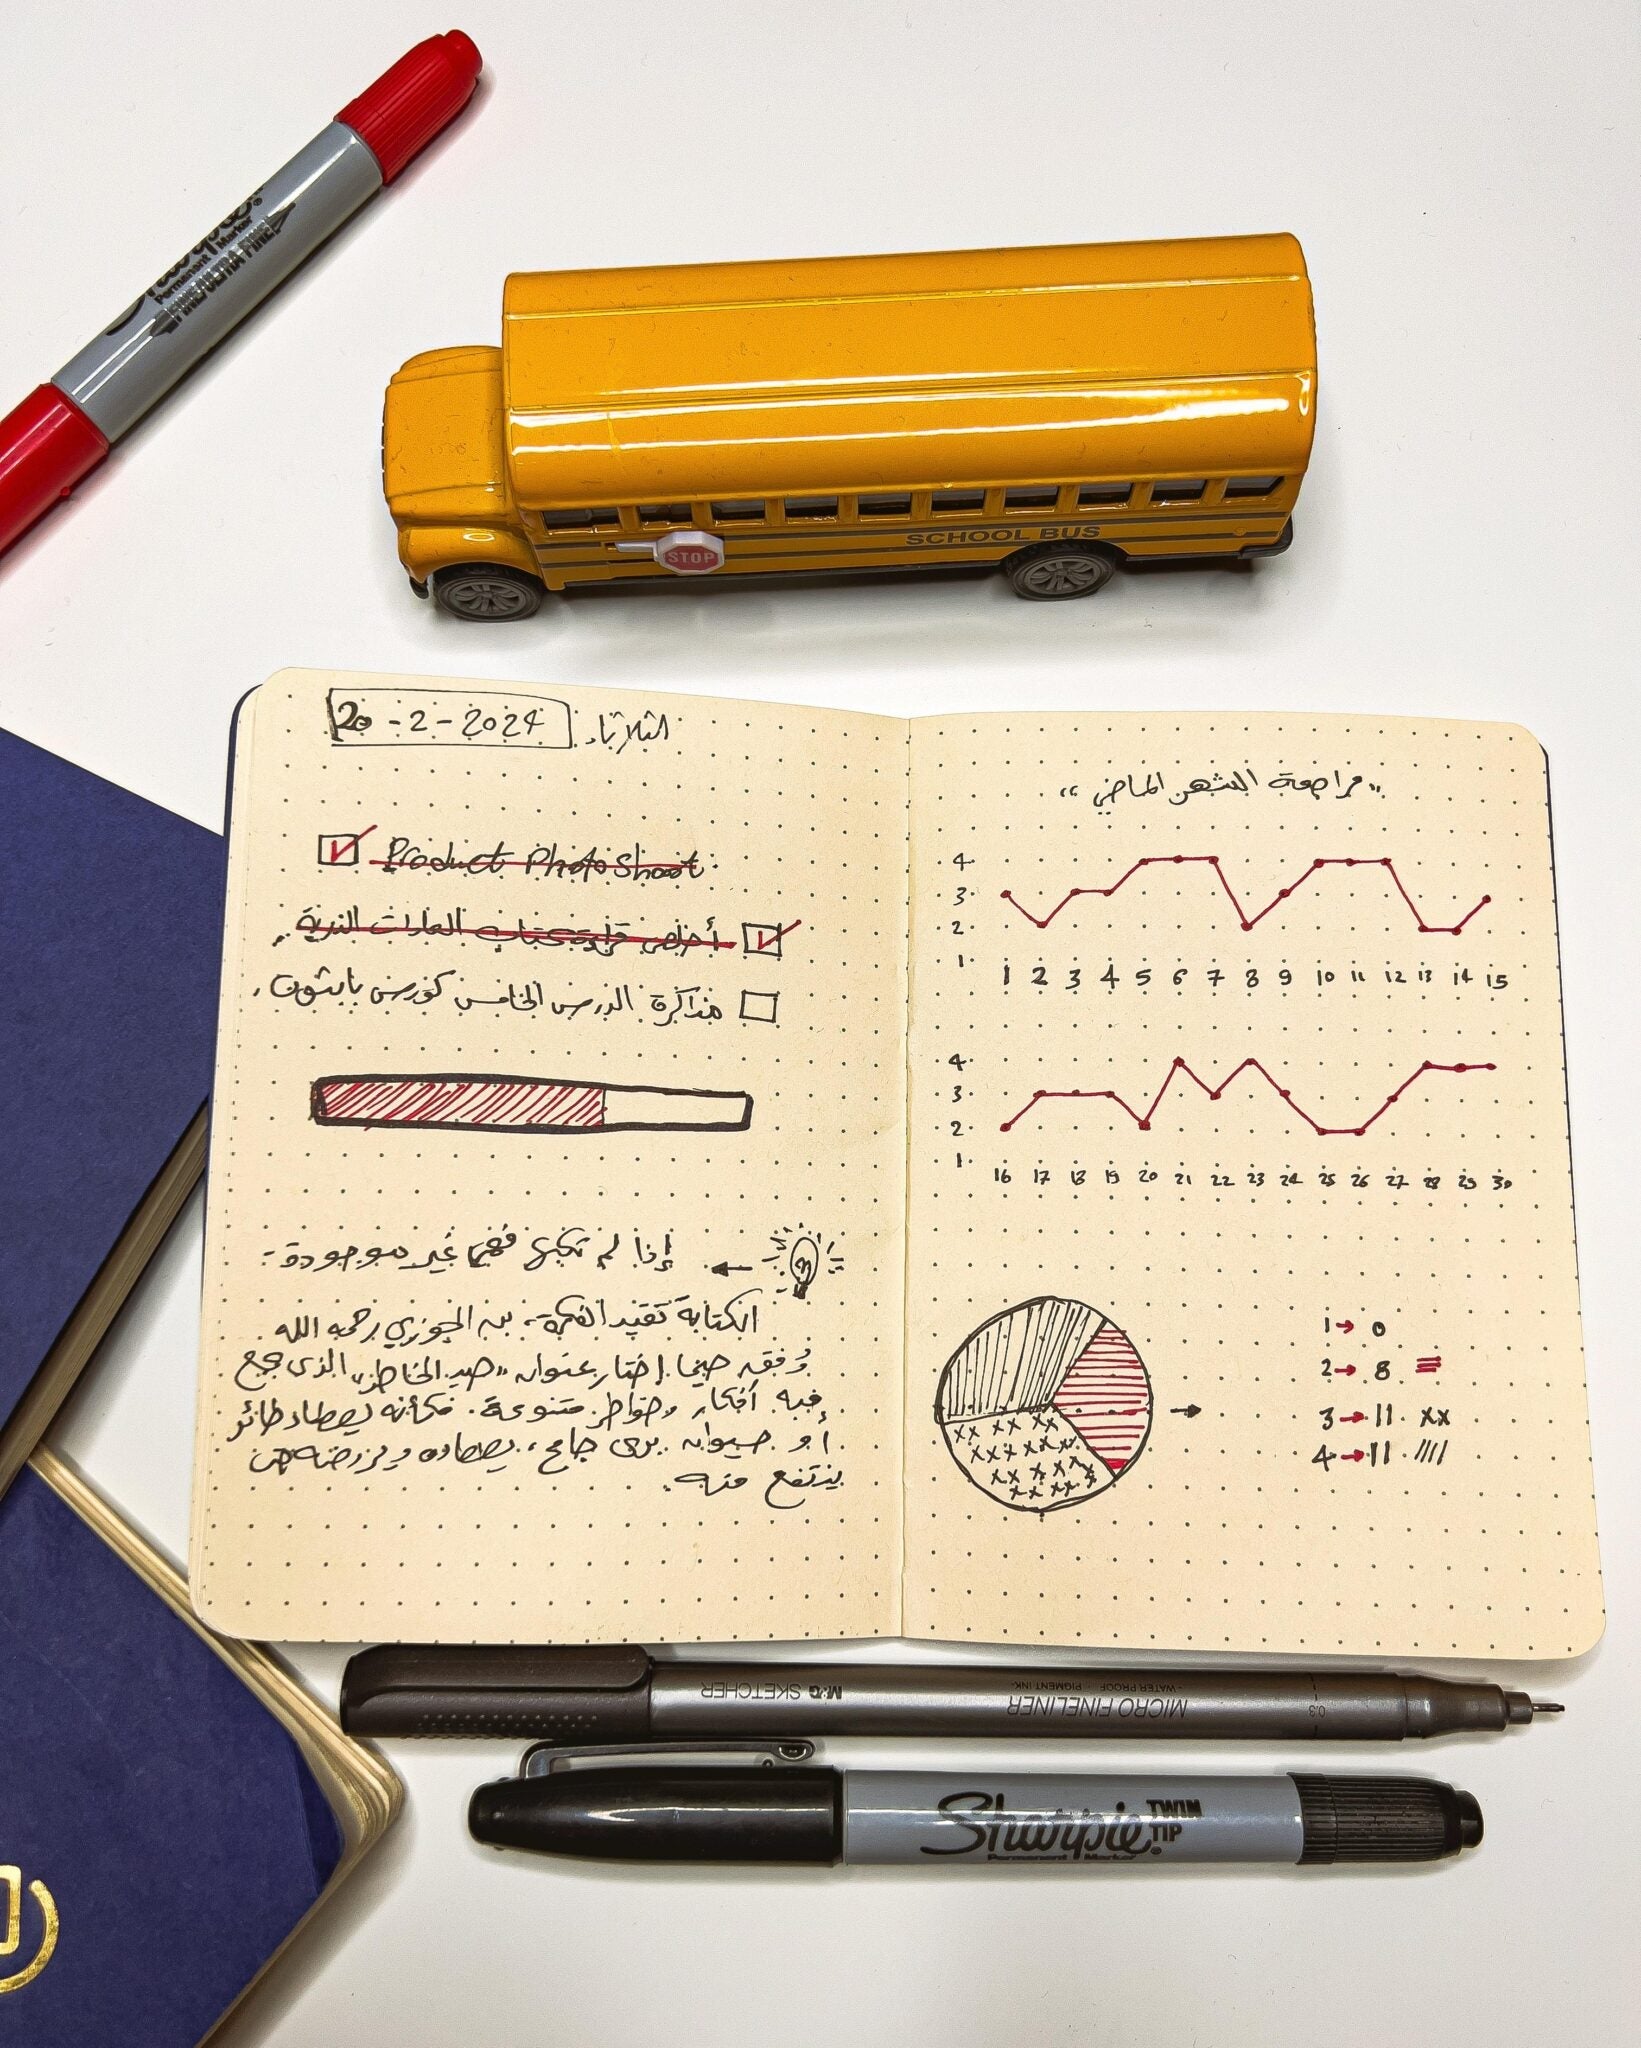 Sharpie®
Permanent Marker
FINE/ULTRA FINE
STOP
SCHOOL BUS
الثلاثاء 20-2-2024
Product Photo Shoot
أخلص قراءة كتاب العادات الذرية.
مذاكرة الدرس الخامس كورس بايثون.
إذا لم تكتبها فهي غير موجودة -
الكتابة تقيد الفكرة، بن الجوزي رحمه الله
وُفق حينما اختار عنوان "صيد الخاطر" الذي جمع
فيه أفكار وخواطر متنوعة. فكأنه يصطاد طائر
أو حيوان بري جامح، يصطاده ويروضه حتى
ينتفع منه.
"مراجعة الشهر الماضي"
4
3
2
1
1 2 3 4 5 6 7 8 9 10 11 12 13 14 15
4
3
2
1
16 17 18 19 20 21 22 23 24 25 26 27 28 29 30
1 → 0
2 → 8
3 → 11 xx
4 → 11 ////
M&G SKETCHER
MICRO FINELINER
- WATER PROOF PIGMENT INK -
0.3
Sharpie. TWIN TIP
Permanent Marker